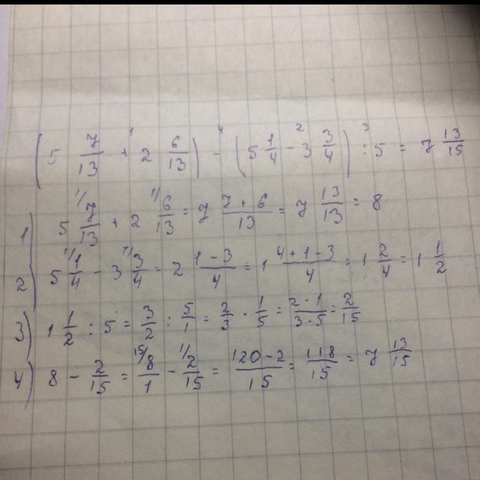 (5 7/13 +¹ 2 6/13) -⁴ (5 1/4 -² 3 3/4) :³ 5 = 7 13/15
1) 5 ¹/7/13 + 2 ¹/6/13 = 7 (7+6)/13 = 7 13/13 = 8
2) 5 ¹/1/4 - 3 ¹/3/4 = 2 (1-3)/4 = 1 (4+1-3)/4 = 1 2/4 = 1 1/2
3) 1 1/2 : 5 = 3/2 : 5/1 = 2/3 · 1/5 = (2·1)/(3·5) = 2/15
4) 8 - 2/15 = ¹⁵/8/1 - ¹/2/15 = (120-2)/15 = 118/15 = 7 13/15